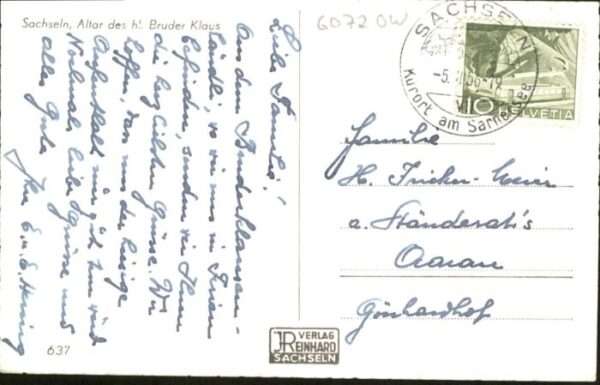 Sachseln, Altar des hl. Bruder Klaus
6072 OW
SACHSELN
-5.
Kurort am Sarnersee
10
HELVETIA
Liebe Familie!
Aus dem Bruderklausen-
Ländli, wo wir uns in Ferien
befinden, senden wir Ihnen
die herzlichsten Grüsse. Wir
hoffen, dass uns der hiesige
Aufenthalt nur gut tun wird
Nochmals liebe Grüsse und
alles Gute
Ihre E. u. E.
Familie
H. Fricker-Meier
a. Ständerat's
Aarau
Gönhardhof
VERLAG
REINHARD
SACHSELN
637